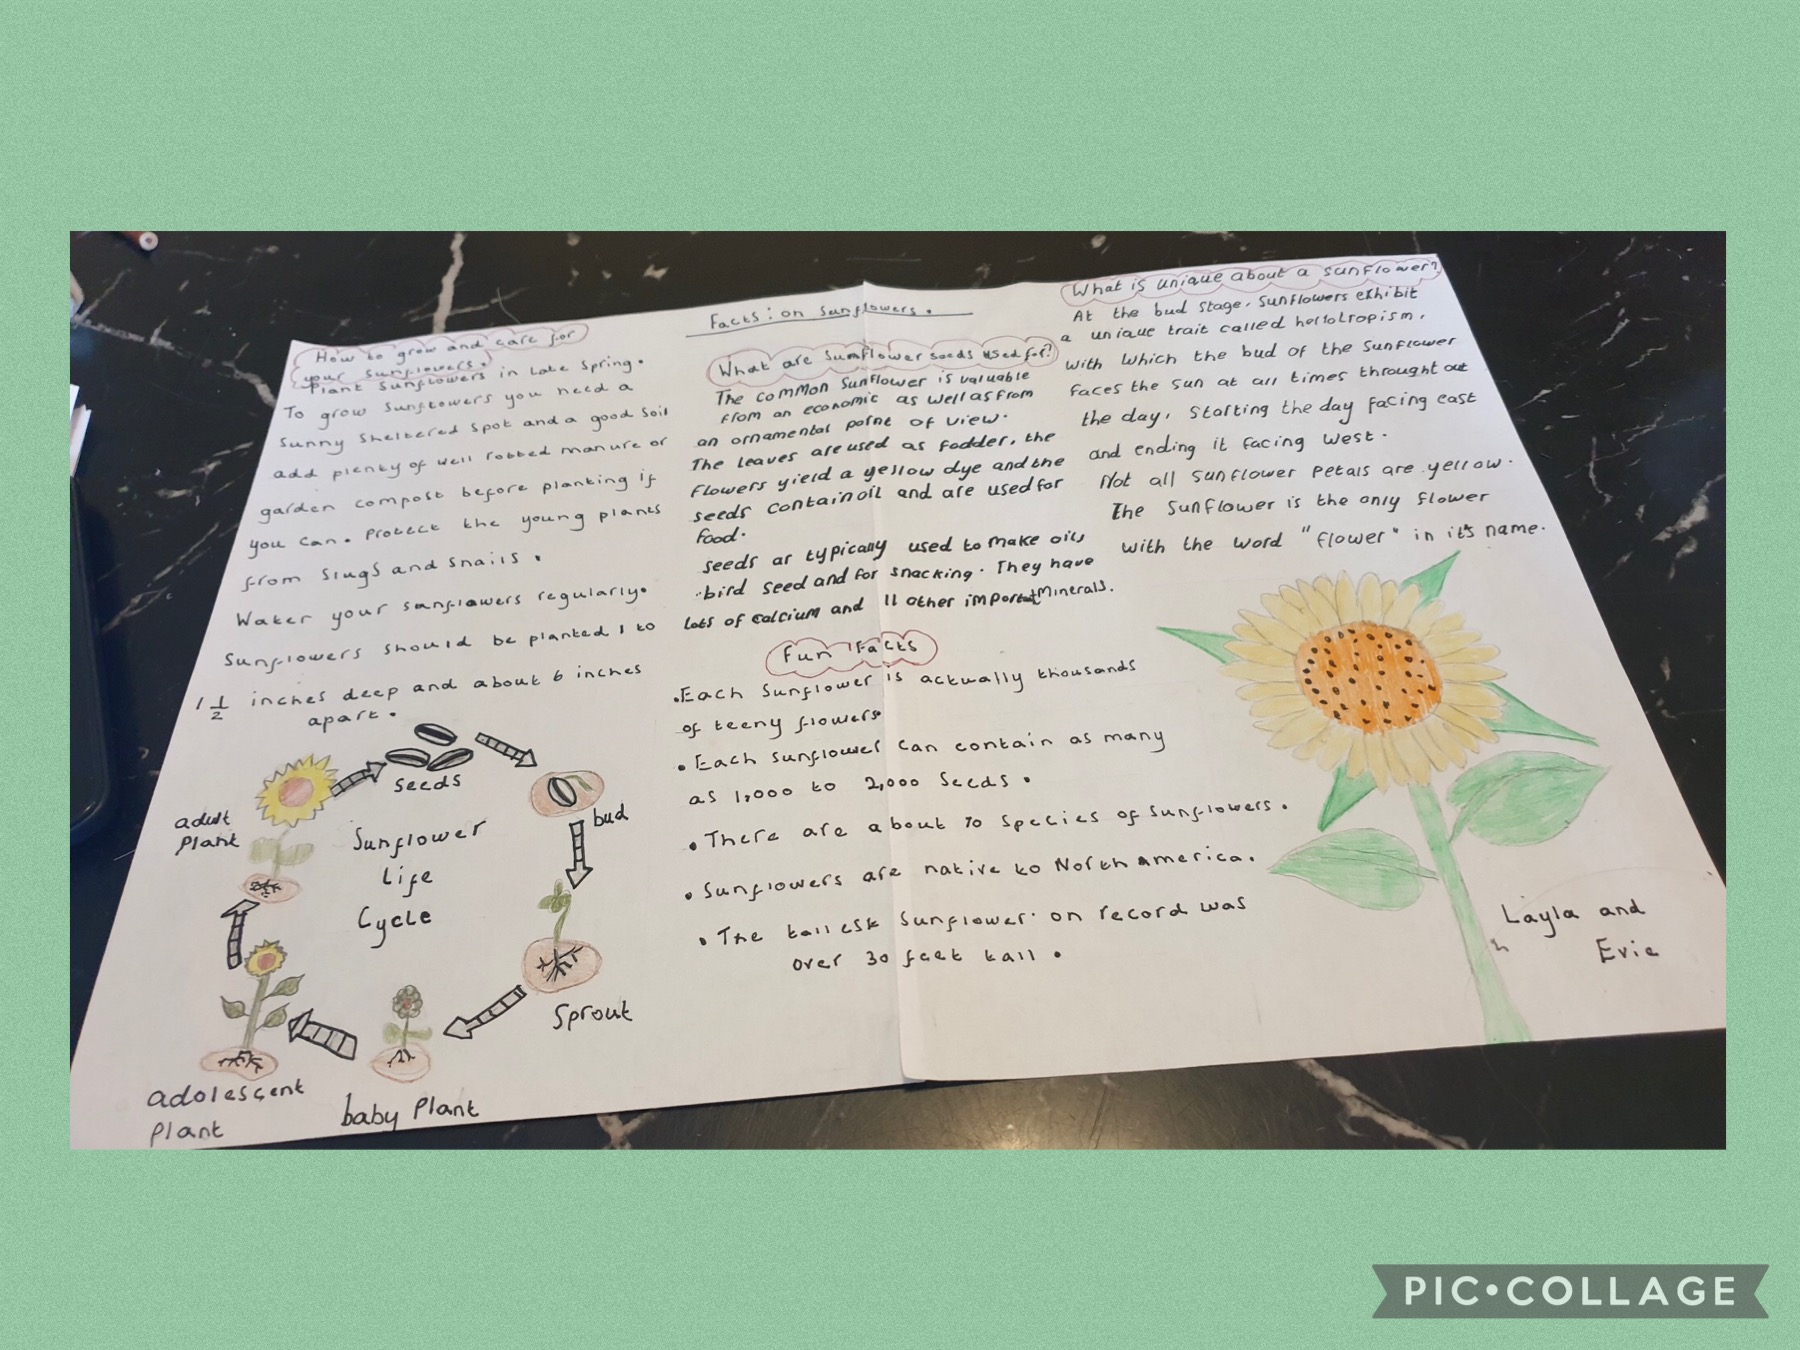 Facts: on Sunflowers.
How to grow and care for
your sunflowers.
Plant Sunflowers in Late Spring.
To grow Sunflowers you need a
Sunny Sheltered Spot and a good Soil
add plenty of well rotted manure or
garden compost before planting if
you can. Protect the young plants
from Slugs and Snails.
Water your sunflowers regularly.
Sunflowers should be planted 1 to
1 1/2 inches deep and about 6 inches
apart.
seeds
bud
Sprout
baby Plant
adolescent
Plant
adult
Plant
Sunflower
Life
Cycle
What are Sunflower seeds used for?
The common Sunflower is valuable
from an economic as well as from
an ornamental point of view.
The leaves are used as fodder, the
Flowers yield a yellow dye and the
seeds contain oil and are used for
food.
seeds ar typically used to make oils
bird seed and for snacking. They have
lots of calcium and 11 other important Minerals.
Fun Facts
• Each Sunflower is actually thousands
of teeny flowers
• Each sunflower can contain as many
as 1,000 to 2,000 Seeds.
• There are about 70 Species of Sunflowers.
• Sunflowers are native to North america.
• The tallest Sunflower on record was
over 30 feet tall.
What is unique about a sunflower?
At the bud stage, sunflowers exhibit
a unique trait called heliotropism,
with which the bud of the sunflower
faces the sun at all times throught out
the day, starting the day facing east
and ending it facing west.
Not all sunflower petals are yellow.
The Sunflower is the only flower
with the word "flower" in it's name.
Layla and
Evie
PIC•COLLAGE